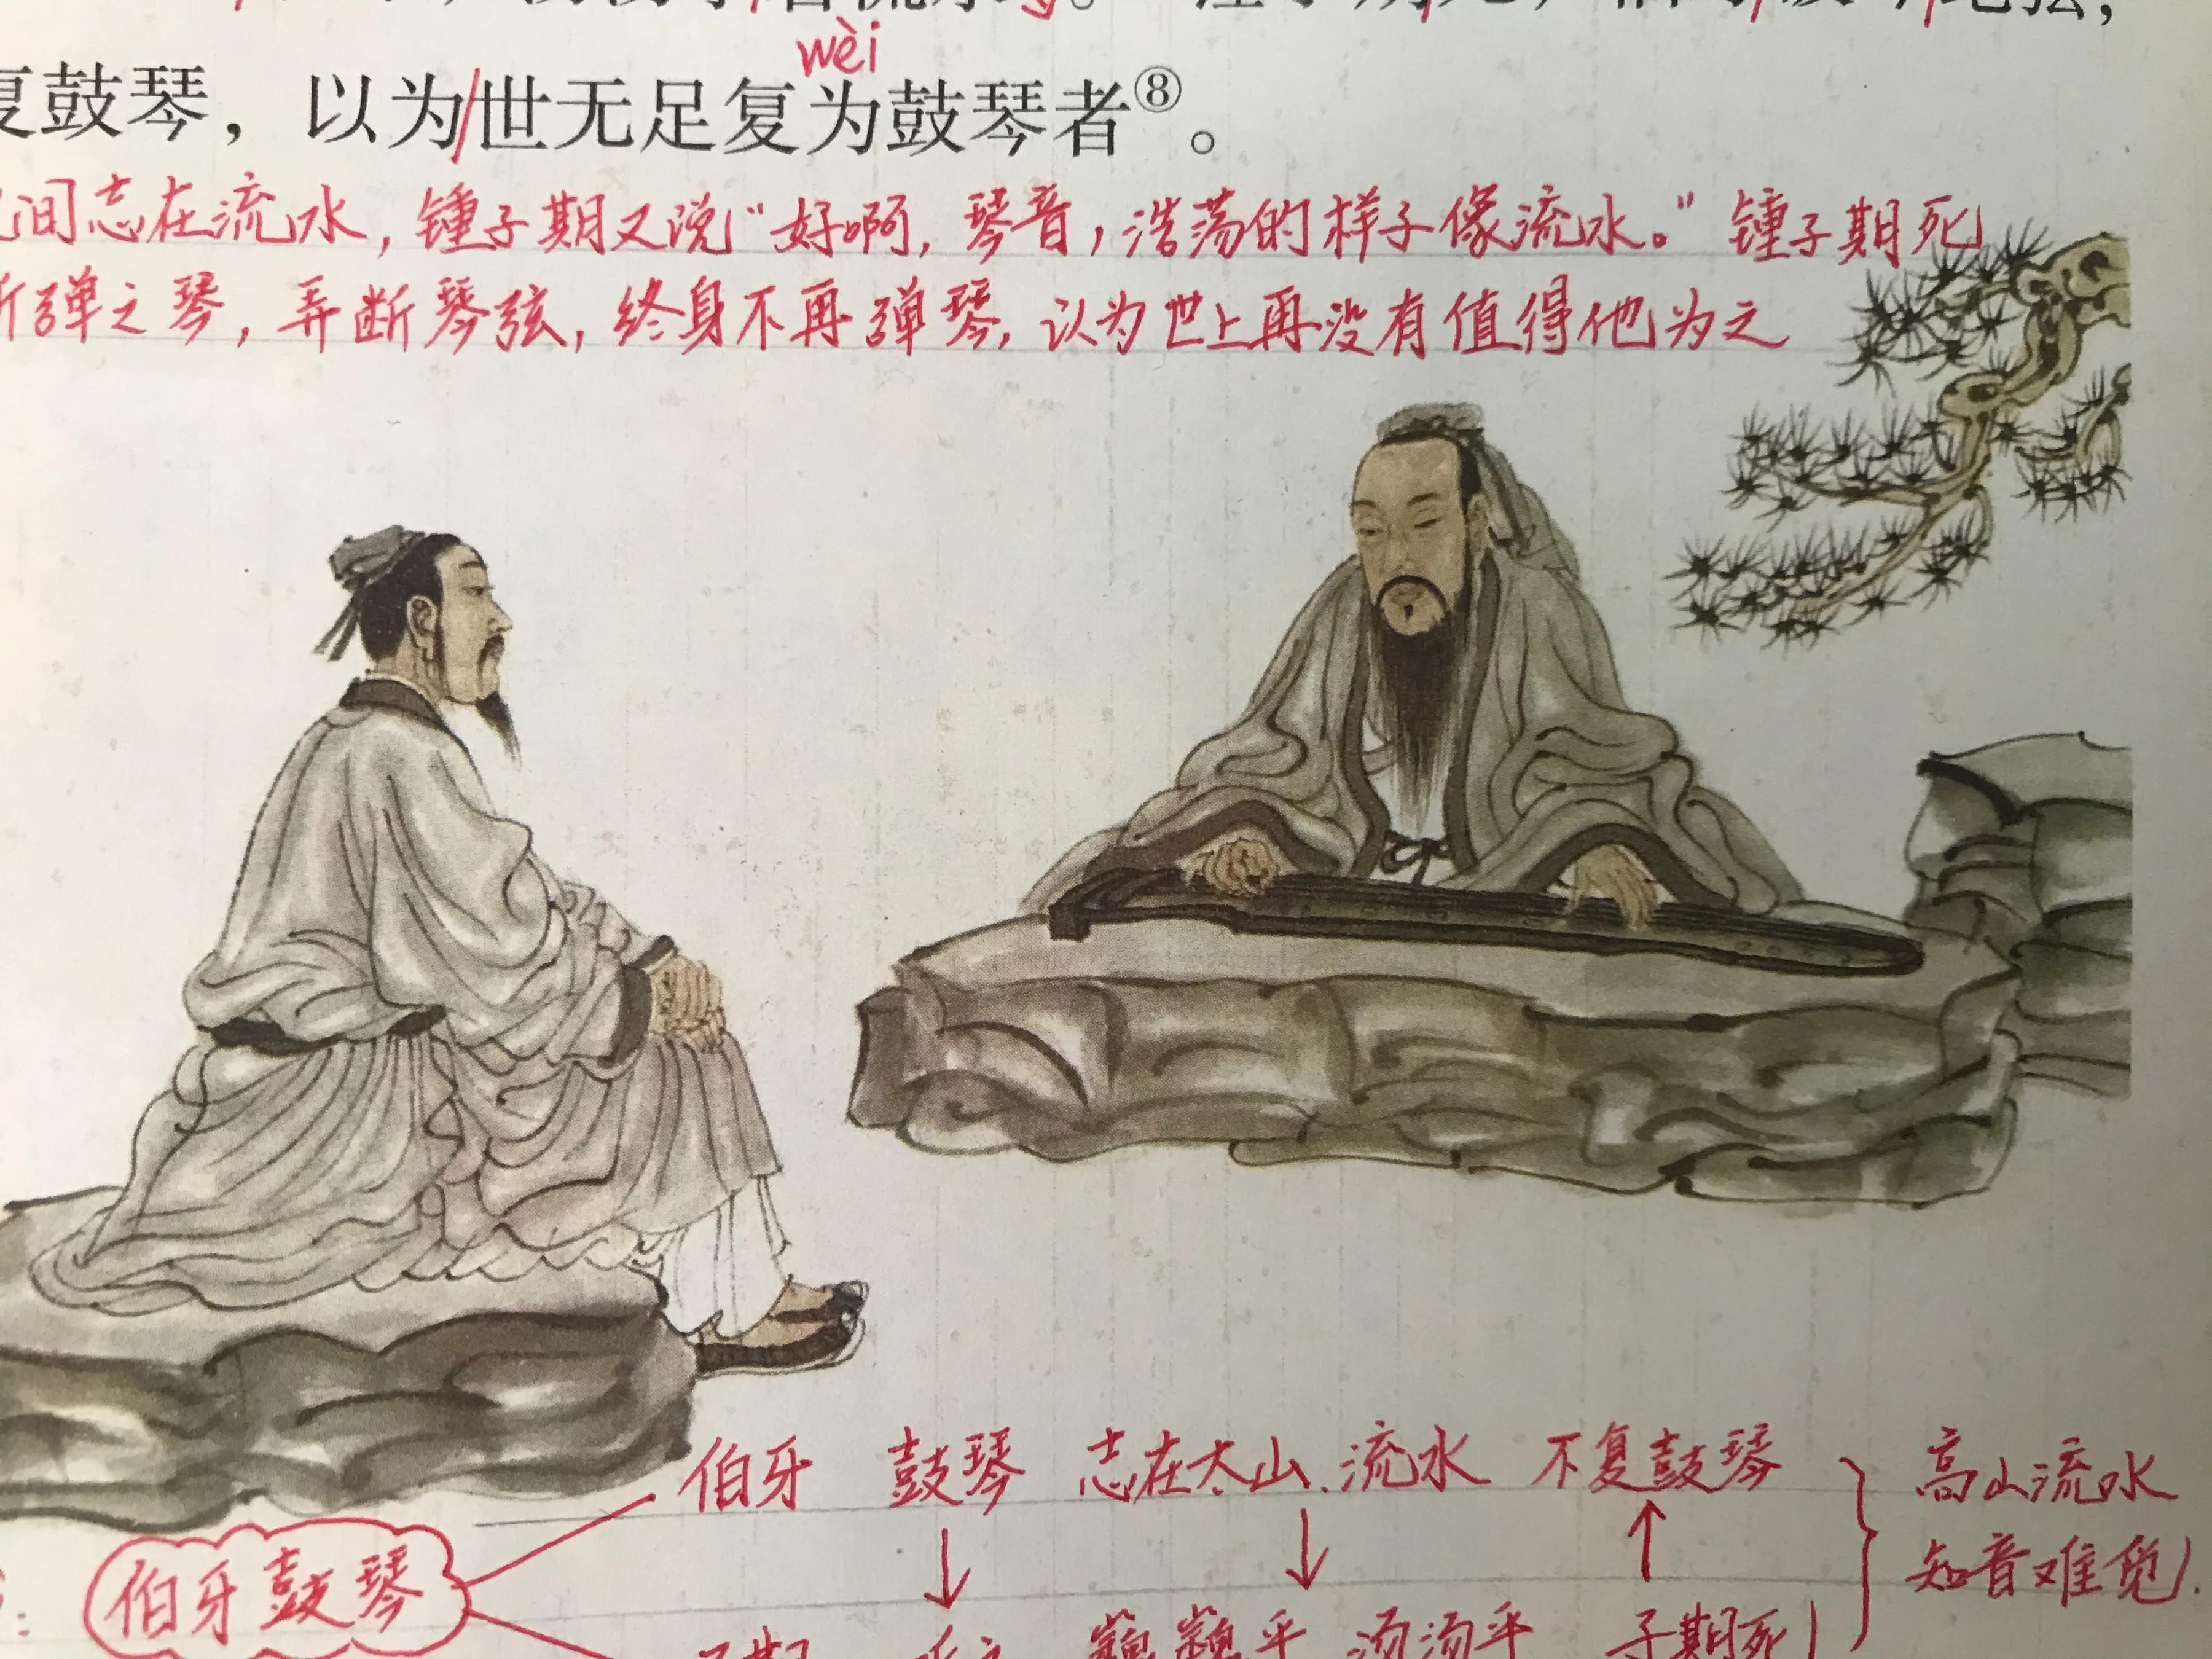 wèi
复鼓琴，以为/世无足复为鼓琴者⑧。
间志在流水，锺子期又说“好啊，琴音，浩荡的样子像流水。”锺子期死
所弹之琴，弄断琴弦，终身不再弹琴，认为世上再没有值得他为之
伯牙 鼓琴 志在太山、流水 不复鼓琴 高山流水
伯牙鼓琴 知音难觅.
巍巍乎 汤汤乎 子期死